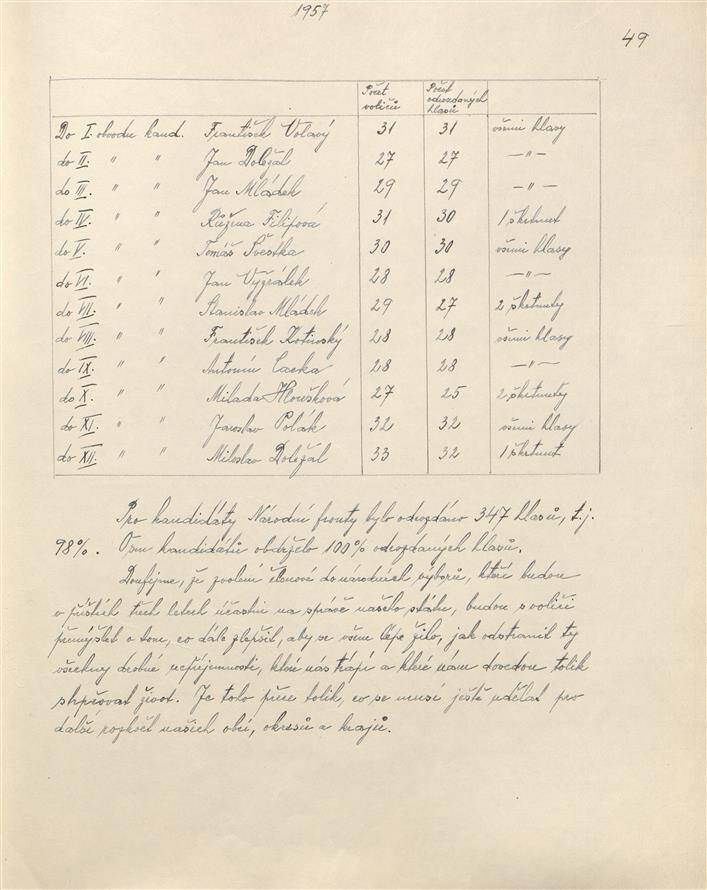 1957
49
Počet voličů
Počet odevzdaných hlasů
Do I. obvodu kand. František Volavý 31 31 všemi hlasy
do II. " " Jan Doležal 27 27 — " —
do III. " " Jan Mládek 29 29 — " —
do IV. " " Růžena Filipová 31 30 1 škrtnut
do V. " " Tomáš Švestka 30 30 všemi hlasy
do VI. " " Jan Vyžrálek 28 28 — " —
do VII. " " Stanislav Mládek 29 27 2 škrtnuty
do VIII. " " František Kotinský 28 28 všemi hlasy
do IX. " " Antonín Cacka 28 28 — " —
do X. " " Milada Hloušková 27 25 2 škrtnuty
do XI. " " Jaroslav Polák 32 32 všemi hlasy
do XII. " " Miloslav Doležal 33 32 1 škrtnut
Pro kandidáty Národní fronty bylo odevzdáno 347 hlasů, t.j.
98%. Osm kandidátů obdrželo 100% odevzdaných hlasů.
Doufejme, že zvolení členové do národních výborů, kteří budou
v příštích třech letech účastni na správě našeho státu, budou s voliči
přemýšlet o tom, co dále zlepšit, aby se všem lépe žilo, jak odstranit ty
všechny drobné nepříjemnosti, které nás trápí a které nám dovedou tolik
ztrpčovat život. Je toho přece tolik, co se musí ještě udělat pro
další rozkvět našich obcí, okresů a krajů.